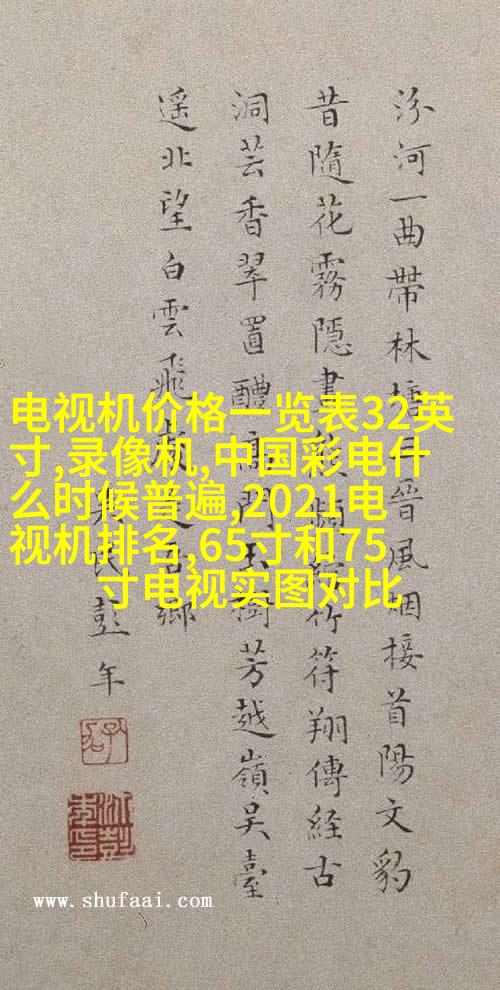 电视机价格一览表32英
寸,录像机,中国彩电什
么时候普遍,2021电
视机排名,65寸和75
寸电视实图对比
汾河一曲帶林塘晉風烟接首陽文豹
昔隨花霧隱竹符翔傳經古
洞芸香翠置醴高門玉樹芳越嶺吳臺
遥北望白雲飛鄉
彭年
www.shufaai.com